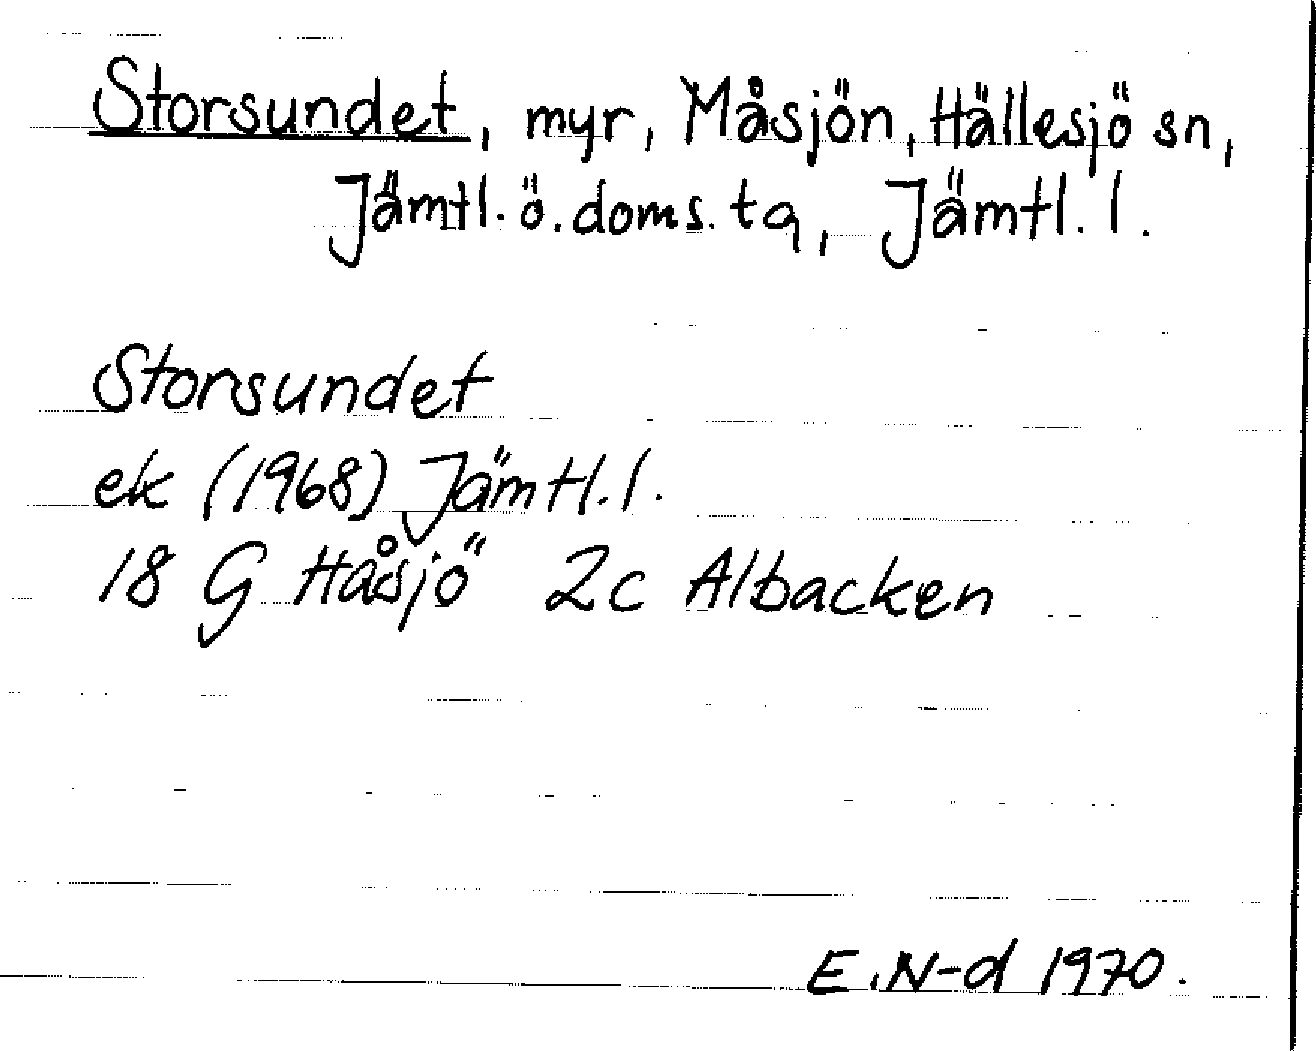 Storsundet, myr, Måsjön, Hällesjö sn,
Jämtl. ö. doms. tq, Jämtl. l.
Storsundet
ek (1968) Jämtl. l.
18 G Håsjö 2c Albacken
E. N-d 1970.